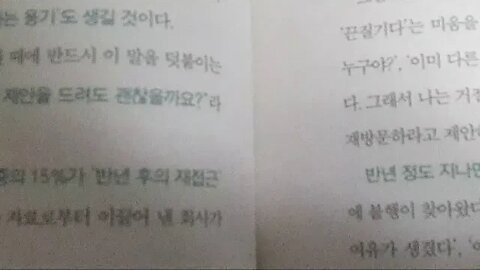 는 용기'도 생길 것이다.
때에 반드시 이 말을 덧붙이는
제안을 드려도 괜찮을까요?'라
15%가 '반년 후의 재접근
이끌어 낸 회사가
'끈질기다'는 미움을
누구야?', '이미 다른
다. 그래서 나는 거절
재방문하라고 제안하
반년 정도 지나면
에 불행이 찾아왔다
여유가 생겼다',